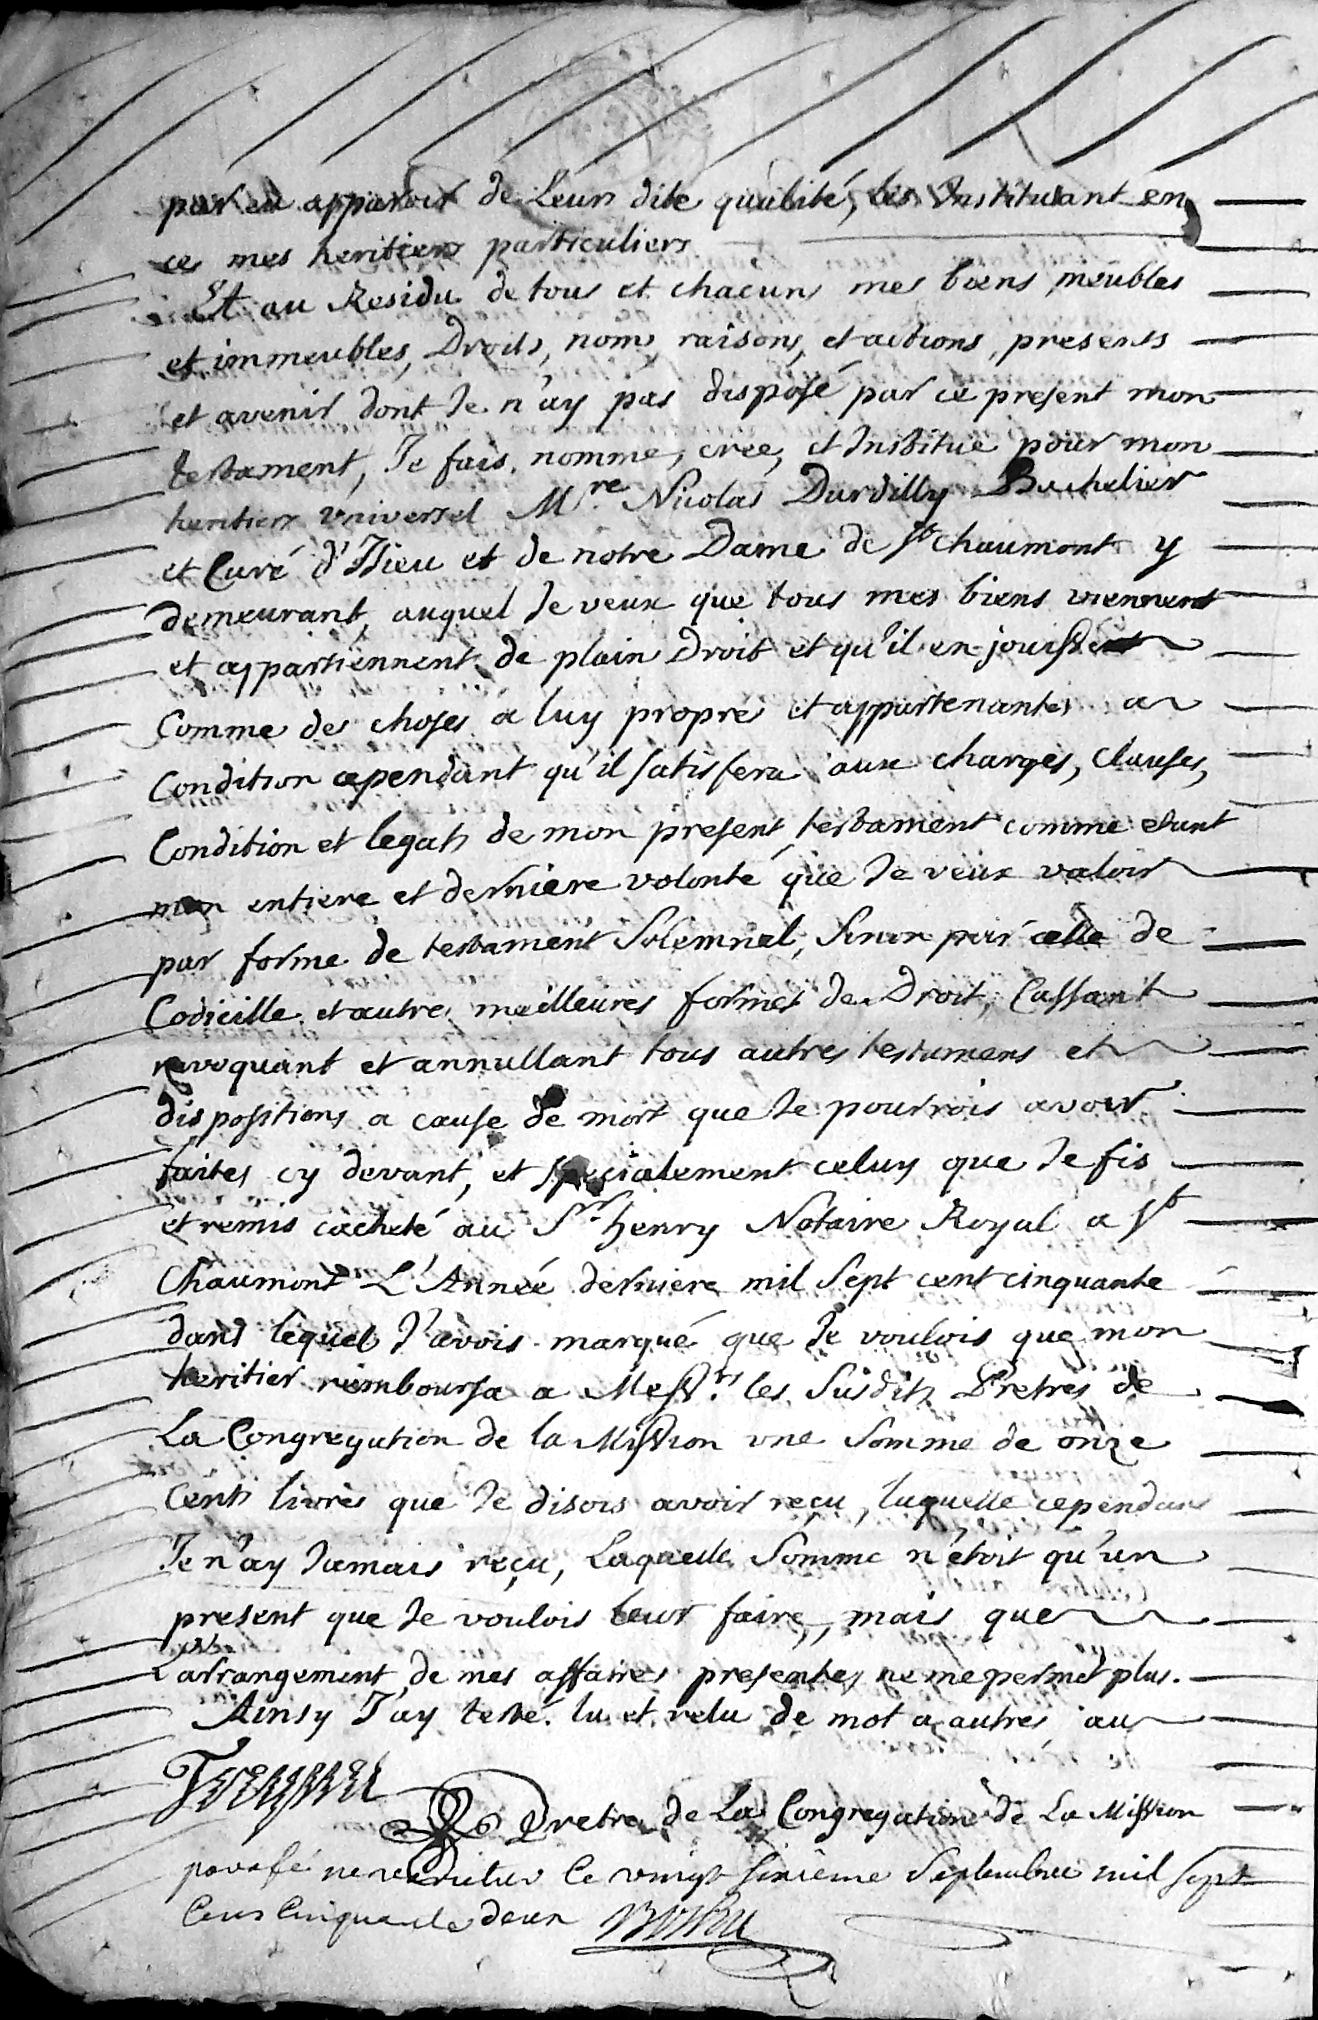 par en apparoir de Leur dite qualité, les Instituant en
ce mes heritiers particuliers
Et au Residu de tous et chacuns mes biens meubles
et immeubles, Droits, noms raisons, et actions, presents
et avenir dont Je n'ay pas disposé par ce present mon
testament, Je fais, nomme, crée, et Institue pour mon
heritier universel M.re Nicolas Durdilly Bachelier
et Curé d'Izieu et de notre Dame de St chaumont y
demeurant, auquel Je veux que tous mes biens viennent
et appartiennent de plain Droit et qu'il en jouisse
Comme des choses a luy propres et appartenantes a
Condition cependant qu'il satisfera aux charges, clauses,
Condition et legats de mon present testament comme etant
mon entiere et derniere volonté que Je veux valoir
par forme de testament Solemnel, Sinon par celle de
Codicille et autres meilleures formes de Droit, Cassant
revoquant et annullant tous autres testamens et
dispositions a cause de mort que Je pourrois avoir
faites cy devant, et specialement celuy que Je fis
et remis cacheté au Sr henry Notaire Royal a St
Chaumont L'Année derniere mil Sept cent cinquante
dans lequel J'avois marqué que Je voulois que mon
heritier remboursa a Messrs les Susdits Pretres de
La Congregation de la Mission une Somme de onze
Cents livres que Je disois avoir reçu, laquelle cependant
Je n'ay Jamais reçu, Laquelle Somme n'étoit qu'un
present que Je voulois leur faire, mais que
L'arrangement de mes affaires presentes ne me permet plus.
Ainsy J'ay testé. lu et relu de mot a autres au
Pretre de La Congregation de La Mission
parafé ne varietur Ce vingt sixieme Septembre mil sept
Cens Cinquante deux